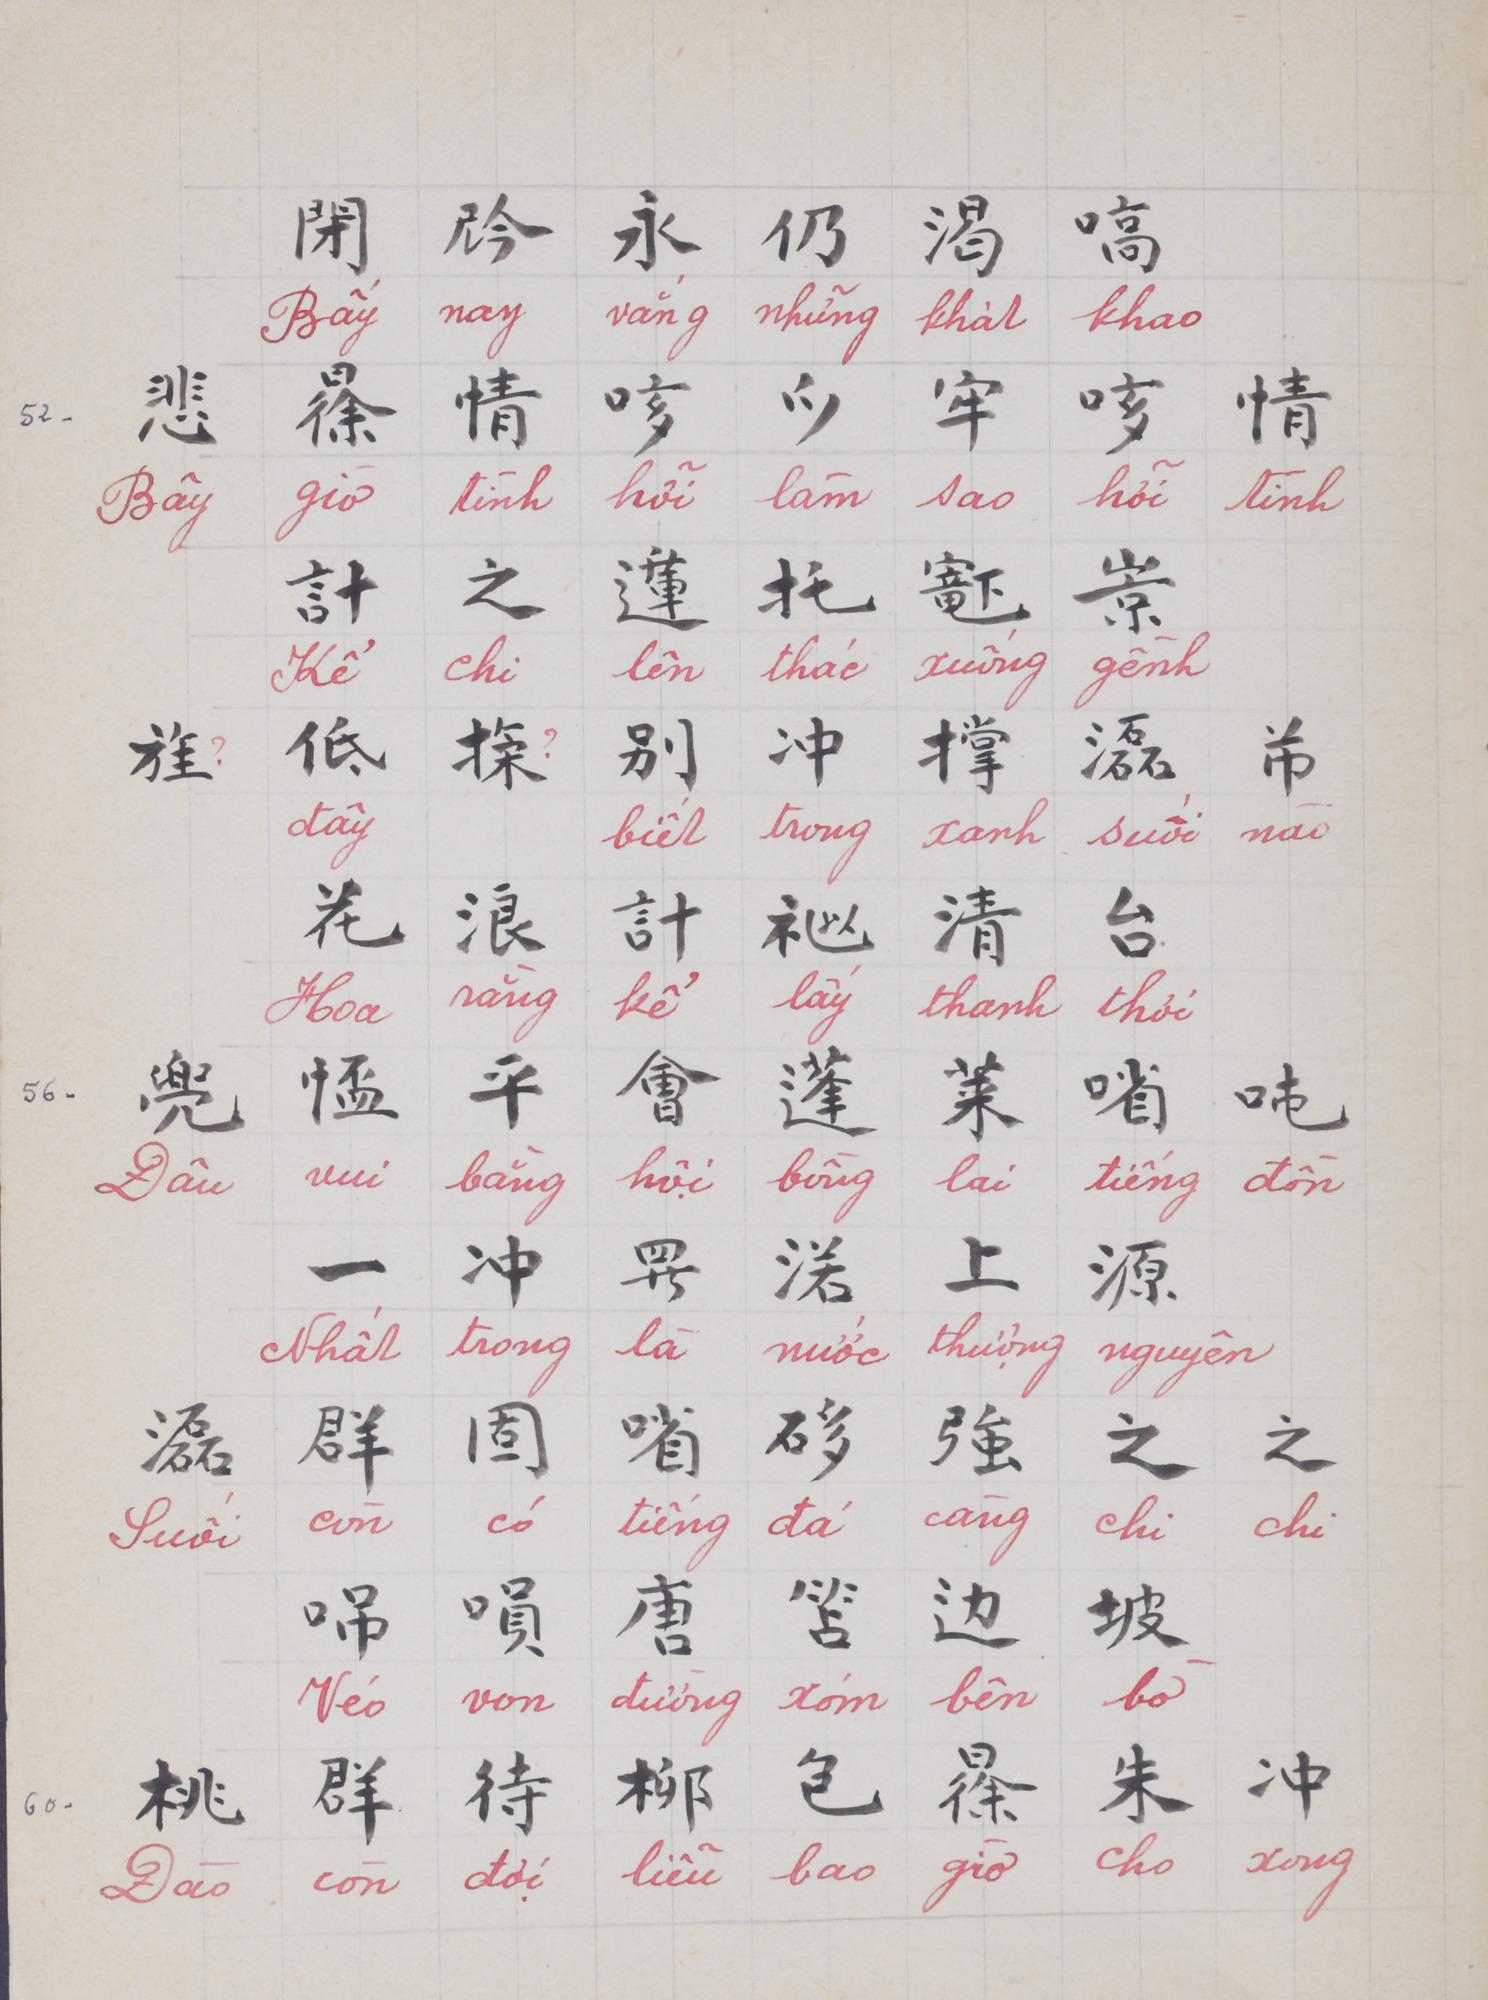 閉 㫋 永 仍 渴 嗃
Bấy nay vắng những khát khao
52- 悲 𣇞 情 咳 𪜀 牢 咳 情
Bây giờ tình hỡi làm sao hỡi tình
計 之 𨖲 托 𥧪 岽
Kể chi lên thác xuống gềnh
? 低 ? 別 冲 撑 㵢 芇
đây biết trong xanh suối nào
花 浪 計 𥙩 清 台
Hoa rằng kể lấy thanh thơi
56- 兜 㥋 平 會 蓬 萊 㗂 吨
Đâu vui bằng hội bồng lai tiếng đồn
一 冲 𱺵 渃 上 源
Nhất trong là nước thượng nguyên
㵢 群 固 㗂 𥒥 強 之 之
Suối còn có tiếng đá càng chi chi
㗄 唄 唐 笘 边 坡
Véo von đường xóm bên bờ
60- 桃 群 待 柳 包 𣇞 朱 冲
Đào còn đợi liễu bao giờ cho xong